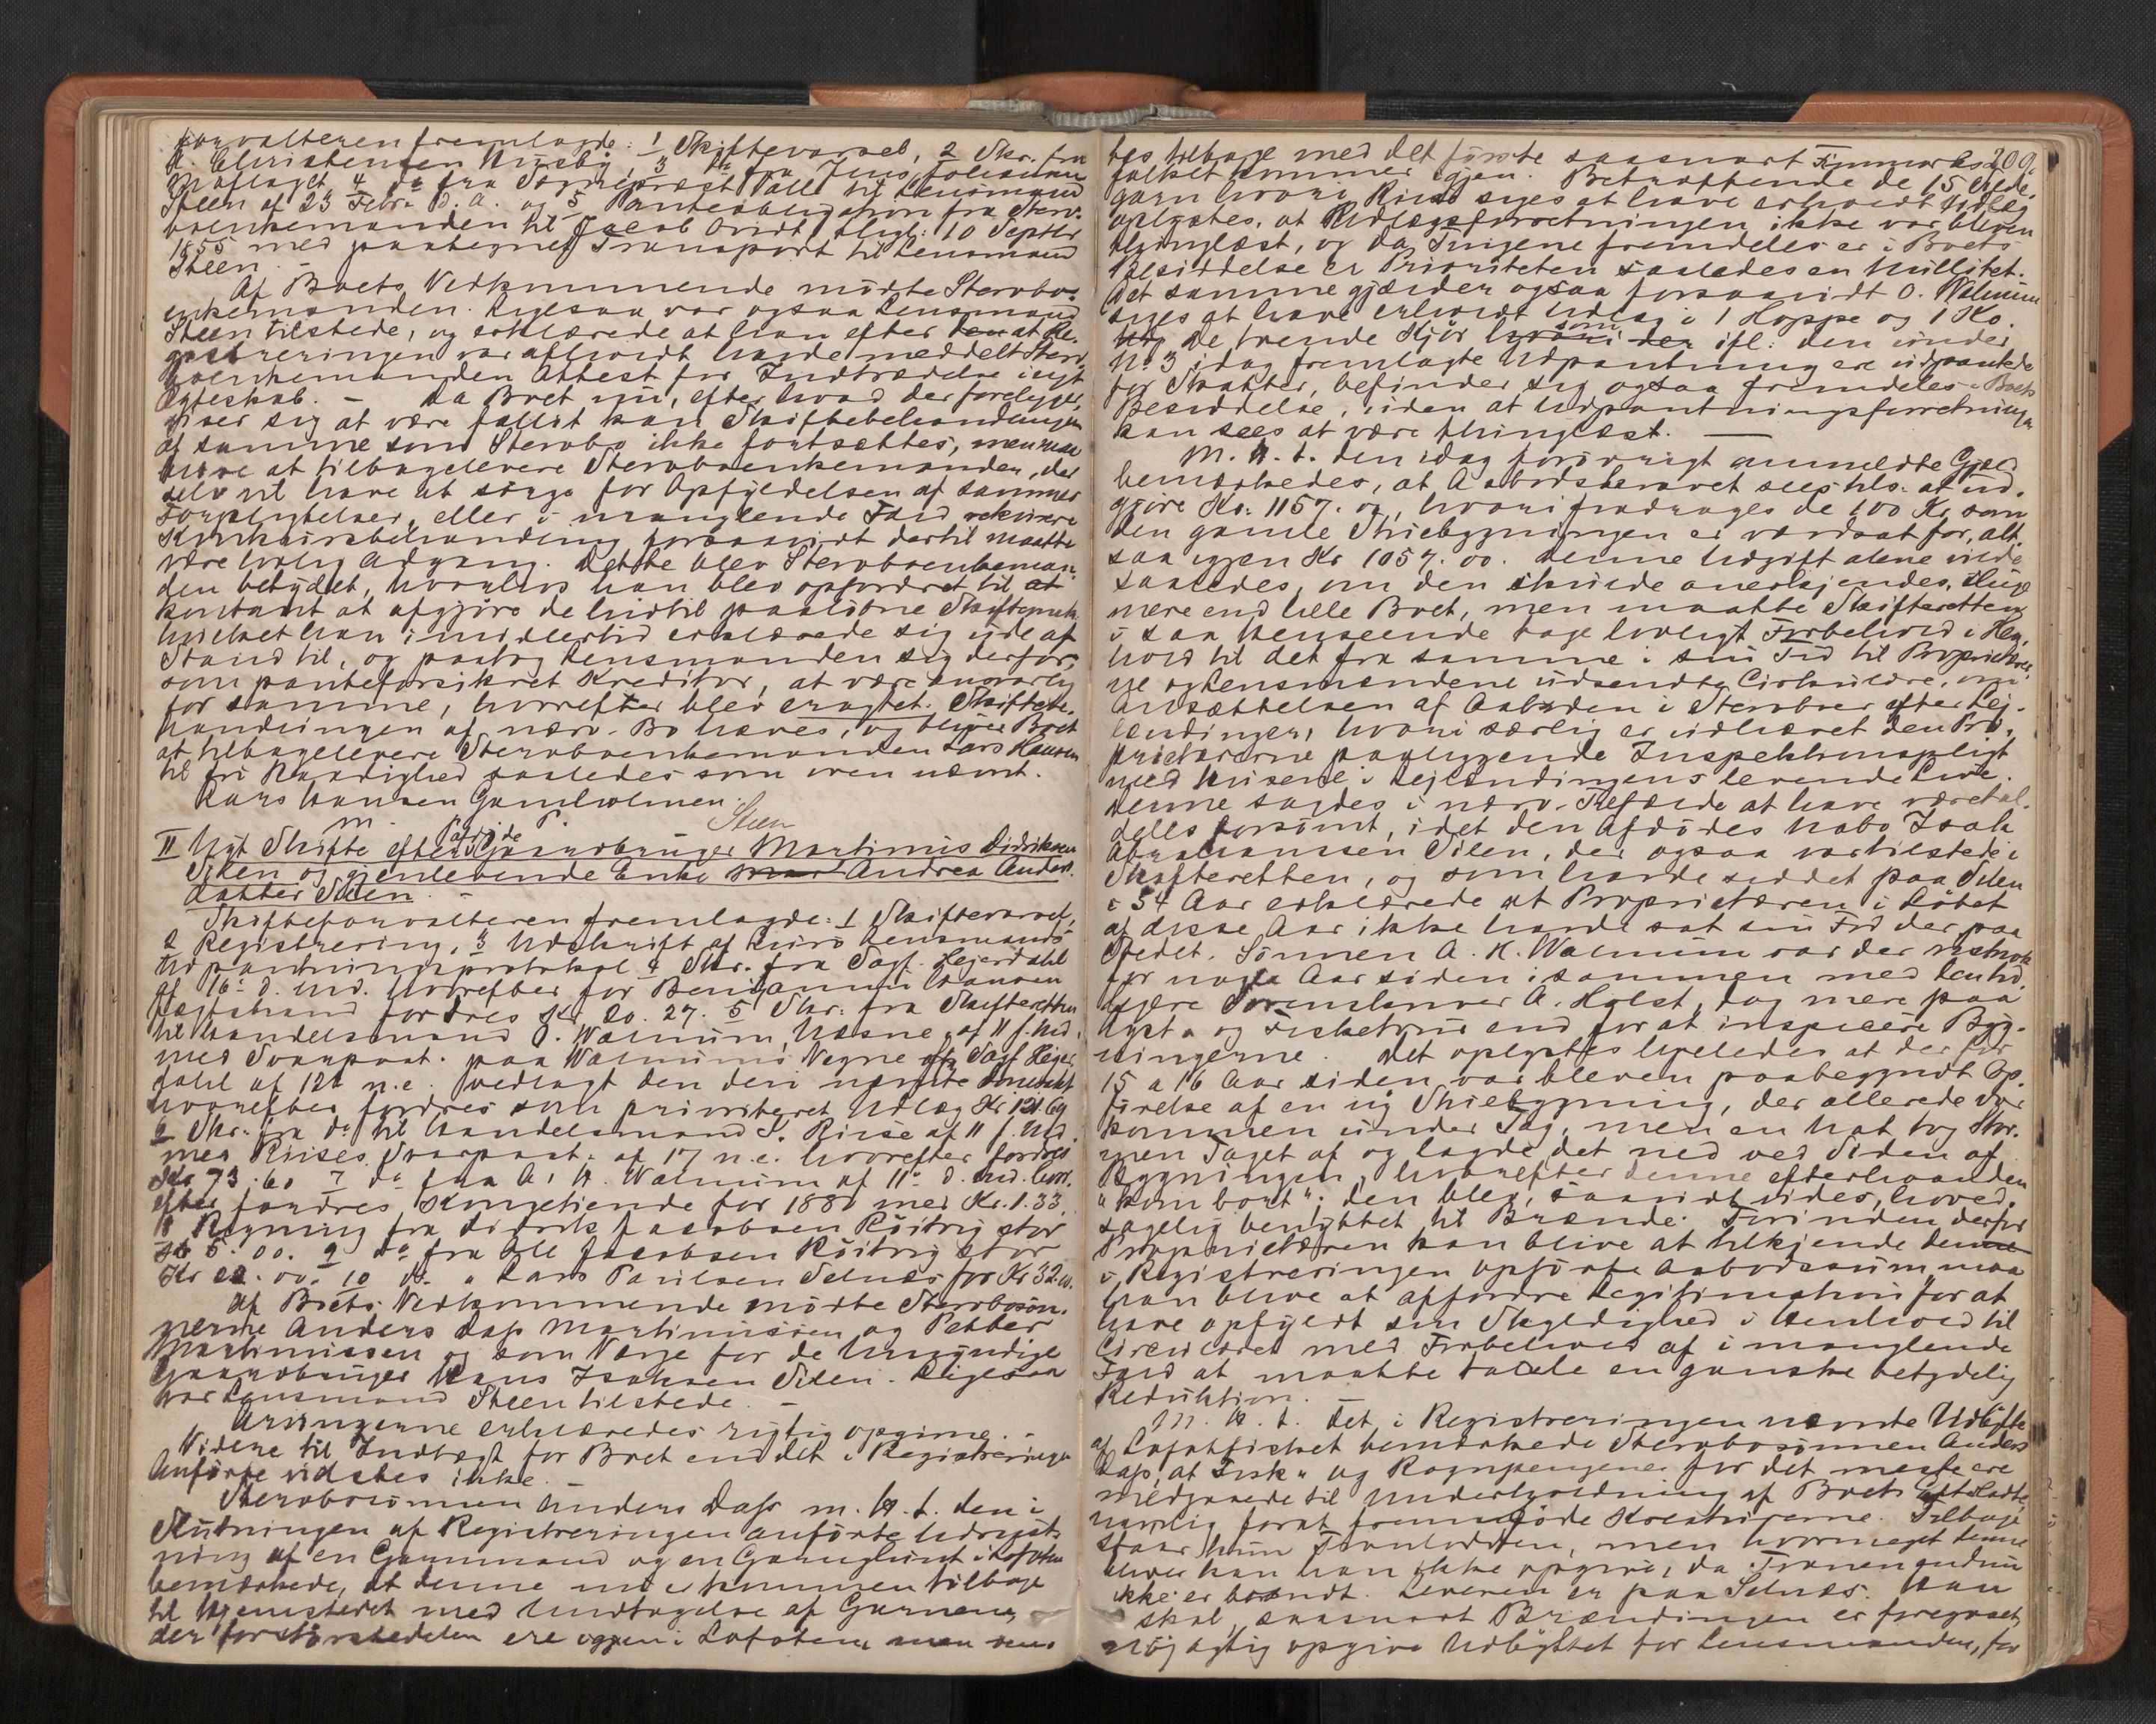 forvalteren fremlagde: 1 Skiftevarsel, 2 Skr. fra
A. Christensen Husby, 3 do fra Jens Tollessen
Maflaget 4 do fra Sogneprest Falle til Lensmand
Steen af 23 Febr. d. A. og 5 Panteobligation fra Sterv-
boenkemanden til Jacob Qvidt thlgl: 10 Septbr
1855 med paategnet Transport til Lensmand
Steen. -
Af Boets Vedkommende mødte Stervbo-
enkemanden. Ligesaa var ogsaa Lensmand
Steen tilstede, og erklærede at han efter at Re-
gistreringen var afholdt havde meddelt Sterv-
boenkemanden Attest for Indtrædelse i nyt
Ægteskab. - Da Boet nu, efter hvad der foreligger,
viser sig at være fallit kan Skiftebehandlingen
af samme som Stervbo ikke fortsættes, men maa
blive at tilbagelevere Stervboenkemanden, der
selv vil have at sørge for Opfyldelsen af sammes
Forpligtelser, eller i manglende Fald rekvirere
Konkursbehandling forsaavidt dertil maatte
være lovlig Adgang. Dette blev Stervboenkeman-
den betydet, hvorhos han blev opfordret til at
kontant at afgjøre de hidtil paaløbne Skifteomk.
hvilket han imidlertid erklærede sig ude af
Stand til, og paatog Lensmanden sig derfor,
som panteforsikret Kreditor, at være ansvarlig
for samme, hvorefter blev eragtet: Skiftebe-
handlingen af nærv. Bo hæves, og bliver Boet
at tilbagelevere Stervboenkemanden Lars Hansen
til fri Raadighed saaledes som oven nævnt.
Lars Hansen Gamholmen.
m. P. Steen
II Nyt Skifte efter afdøde Gaardbruger Martinus Didriksen
Silen og gjenlevende Enke Andrea Anders-
datter Silen. -
Skifteforvalteren fremlagde: 1 Skiftevarsel,
2 Registrering, 3 Udskrift af Lurø Lensmands
Udpantningsprotokol 4 Skr. fra Sagf. Hejerdahl
af 16de d. Md. hvorefter for Benjamin Hansen
Ægtshand fordres Kr. 20.27. 5 Skr. fra Skifteretten
til Handelsmand O. Walnum, Næsne af 11 f. Md.
med Svarpaat. paa Walnums Vegne af Sagf. Hejer-
dahl af 12te n.e. vedlagt den deri nævnte Domsakt
hvorefter fordres som prioriteret Udlæg Kr. 121.69
6 Skr. fra do til Handelsmand S. Riise af 11 f. Md.
med Riises Svarpaat. af 17 n.e. hvorefter fordres
Kr 73.60 7 do fra A. H. Walnum af 11te d. Md. hvor-
efter fordres Kongetiende for 1880 med Kr. 1.33,
8 Regning fra Didrik Jacobsen Röitvig stor
Kr 5.00. 9 do fra Ole Jacobsen Röitvig stor
Kr 22.00. 10 do " Lars Paulsen Selnæs for Kr 32.00.
Af Boets Vedkommende mødte Stervbosøn-
nerne Anders Dass Martinussen og Petter
Martinussen og som Værge for de Umyndige
Gaardbruger Hans Isaksen Silen. Ligesaa
var Lensmand Steen tilstede. -
Arvingerne erklæredes rigtig opgivne. -
Videre til Indtægt for Boet end det i Registreringen
Anførte vidstes ikke. -
Stervbosønnen Anders Dass m. H. t. den i
Slutningen af Registreringen anførte Udrust-
ning af en Garnmand og en Garnglunt i Lofoten
bemærkede, at denne nu er kommen tilbage
til Hjemstedet med Undtagelse af Garnene,
der for størstedelen ere igjen i Lofoten, men ven-
209.
tes tilbage med det første saasnart Finmarks-
folket kommer igjen. Betræffende de 15 Silde-
garn hvori Riise siges at have erholdt Udlæg
oplystes, at Udlægsforretningen ikke var bleven
thinglæst, og da Tingene fremdeles er i Boets
Besiddelse er Prioriteten saaledes en Nullitet.
Det samme gjælder ogsaa forsaavidt O. Walnum
siges at have erholdt Udlæg i 1 Hoppe og 1 Ko.
De trende Kjør som ifl. den under
No 3 idag fremlagte Udpantning ere udpantede
for Skatter, befinder sig ogsaa fremdeles i Boets
Besiddelse, uden at Udpantningsforretningen
kan sees at være thinglæst. -
M. H. t. den idag forøvrigt anmeldte Gjæld
bemærkedes, at Aabodskravet sees tils. at ud-
gjøre Kr. 1157.00, hvori fradrages de 100 Kr, som
den gamle Stuebygningen er værdsat for, alt-
saa igjen Kr 1057.00. Denne Udgift alene vilde
saaledes, om den skulde anerkjendes, sluge
mere end hele Boet, men maatte Skifteretten
i saa Henseende tage lovligt Forbehold i Hen-
hold til det fra samme i sin Tid til Proprietære-
ne og Lensmændene udsendte Cirkulære, om
Ansættelsen af Aaboden i Stervboer efter Lej-
lændinger, hvori særlig er udhævet den Pro-
prietærerne paaliggende Inspektionspligt
med Husene i Lejlændingens levende Live.
Denne sagdes i nærv. Tilfælde at have været al-
deles forsømt, idet den Afdødes Nabo Isak
Abrahamsen Silen, der ogsaa var tilstede i
Skifteretten, og som havde siddet paa Silen
i 34 Aar erklærede at Proprietæren i Løbet
af disse Aar ikke havde sat sin Fod der paa
Stedet. Sønnen A. K. Walnum var der vistnok
for nogle Aar siden i sammen med Lands-
kjære Premslønver A. Holst, dog mere paa
Lyst- og Fisketour end for at inspicere Byg-
ningerne. Det oplystes ligeledes at der for
15 a 16 Aar siden var bleven paabegyndt Op-
førelse af en ny Stuebygning, der allerede var
kommen under Tag, men en Nat tog Stor-
men Taget af og lagde det ned ved Siden af
Bygningen, hvorefter denne efterhaanden
"kom bort"; den blev, saavidt vides, hoved-
sagelig benyttet til Brænde. Forinden derfor
Proprietæren kan blive at tilkjende denne
i Registreringen opførte Aabodssum, maa
han blive at affordre Legitimation for at
have opfyldt sin Skyldighed i Henhold til
Cirkulæret med Forbehold af i manglende
Fald at maatte taale en ganske betydelig
Reduktion. -
M. H. t. det i Registreringen nævnte Udbytte
af Lofotfisket bemærkede Stervbosønnen Anders
Dass, at Fisk- og Rognpengene for det meste ere
medgaaede til Underholdning af Boets Ladte,
navnlig forat fremføde Kreaturerne. Tilbage
staar kun Tranlodden, men hvormeget denne
bliver kan han ikke opgive, da Tranen endnu
ikke er brændt. Leveren er paa Selnæs. Han
skal, saasnart Brændingen er foregaaet,
nøjagtig opgive Udbyttet for Lensmanden, for